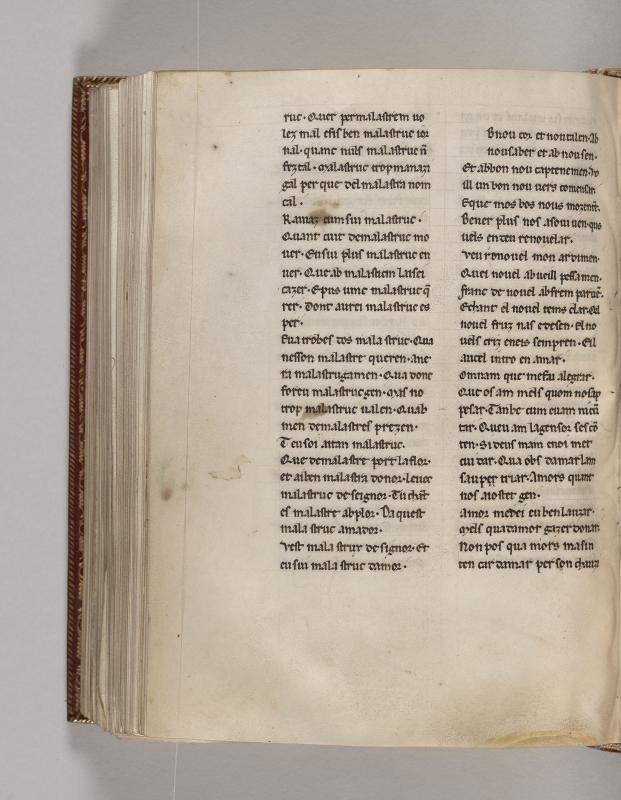 ruc · Quer per malastrem uo
lez mal efis ben malastruc ior
nal · quanc nuils malastruc n̄
fez tal · Malastruc trop manazi
gal per que del malastra nom
cal ·
Ramaz cum sui malastruc ·
Quant cuit de malastruc mo
uer · Eu sui plus malastruc en
uer · Que ab malastuem laisei
cazer · E pus umc malastruc q̄
rer · Dont aurei malastruc es
per ·
Eu a trobes dos mala struc · Qua
nesson malastre queren · ane
ra malastrugamen · Qua donc
foreu malastrucgen · Mas no
trop malastruc ualen · Quab
men demalastres prezen ·
Teu soi aitan malastruc ·
Que demalastre port la flor ·
et ai ben malastra donor · leuoc
malastruc de seignor · Tu chāt
es malastre ab plor · Da quest
mala struc amador ·
Vest mala strux de signor · Et
eu sui mala struc damor ·
B nou cor et nou talen · Ab
nou saber et ab nou sen ·
Et ab bon nou captenemen · Vo
ill un bon nou uers comensar.
E que mos bos nous
Bener plus nos asoui uen · qus
uels en deu renouelar ·
Veu renouel mon ardimen ·
Quei nouel ab ueill pessamen ·
franc de nouel ab frem
E chant el nouel tems clar ·
nouel fruz nas e desen · El no
uels criz eneis sempren · Eil
aucel intro en amar ·
Omnam que mesui alegrar ·
Que os am mels quom no sap
pesar · Tan be cum euam nicū
tar · Queu am lagensor ses cō
ten · Si deus mam enoi met
cui dar · Qua obs damar lam
saup er triar · Amors quant
nos aiostet gen ·
Amor medei eu ben lauzar ·
Mels quad amor gazerdonar.
Non pos qua mors ma sin
ten car damar per son